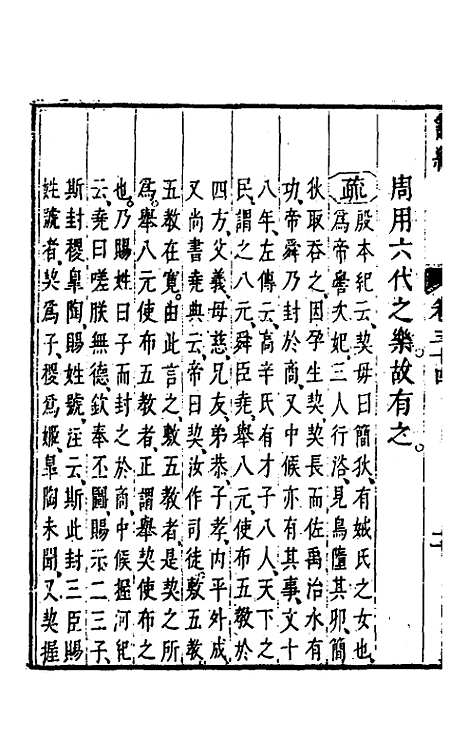 周用六代之樂故有之。
疏 殷本紀云、契母曰簡狄、有娀氏之女也、
爲帝嚳次妃、三人行浴、見鳥墮其卵、簡
狄取吞之、因孕生契、契長而佐禹治水有
功、帝舜乃封於商、又中候亦有其事、文十
八年、左傳云、高辛氏有才子八人、天下之
民、謂之八元、舜臣堯、舉八元、使布五教於
四方、父義、母慈、兄友、弟恭、子孝、内平外成、
又尚書堯典云、帝曰、契、汝作司徒、敷
五教在寬、由此言之、敷五教者、是契之所
爲、舉八元使布五教者、正謂舉契使布之
也、乃賜姓曰子、而封之於商、中候握河紀
云、堯曰、嗟朕無德、欽奉丕圖、賜示二三子、
斯封稷皐陶、賜姓號、注云、斯此封三臣、賜
姓號者、契爲子、稷爲姬、皐陶未聞、又契握
卷三十四